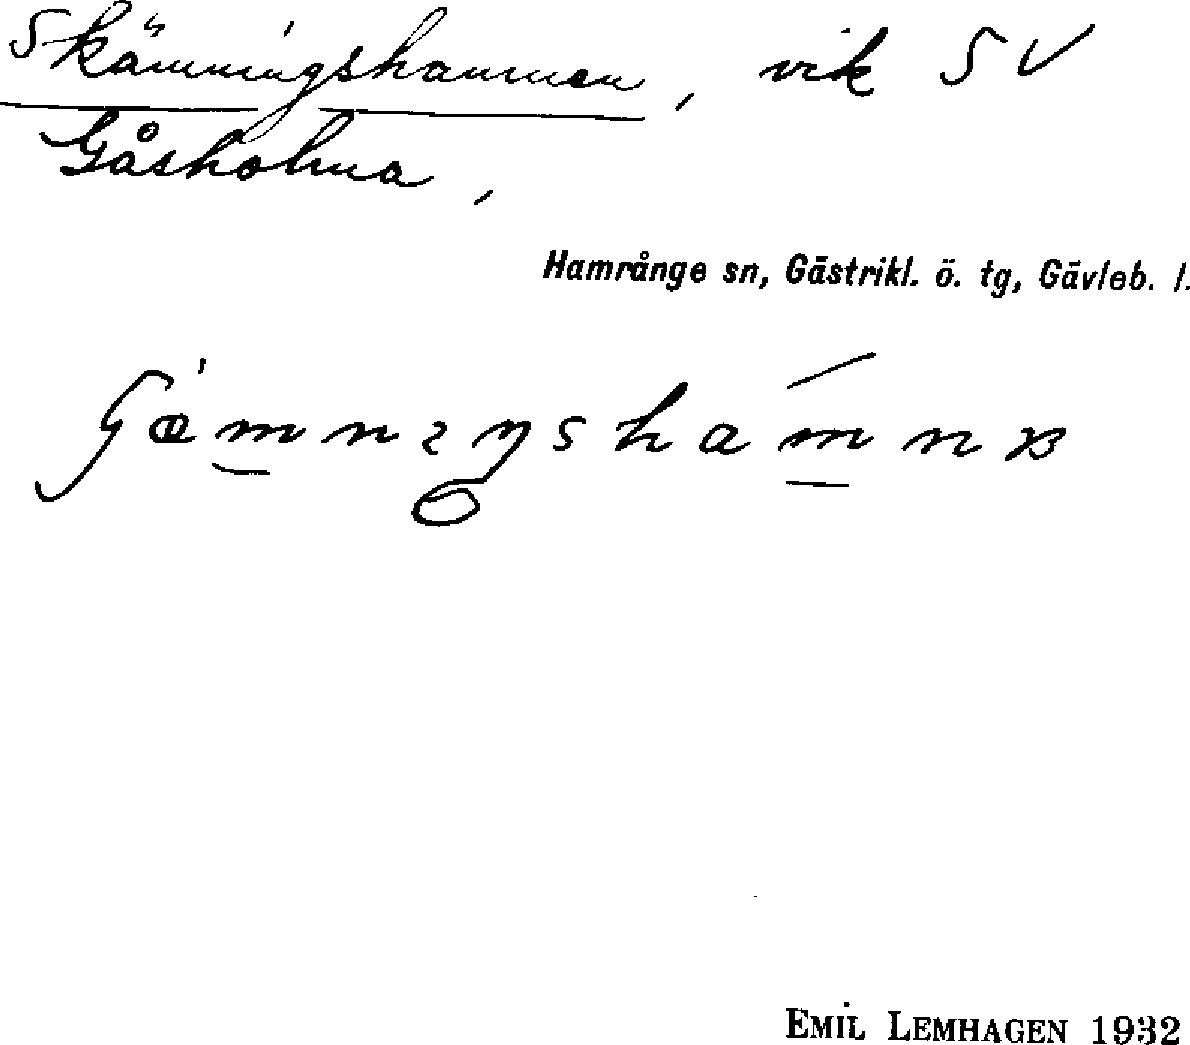 Skämningshamnen, vik SV
Gåsholma,
Hamrånge sn, Gästrikl. ö. tg, Gävleb. l.
EMIL LEMHAGEN 1932